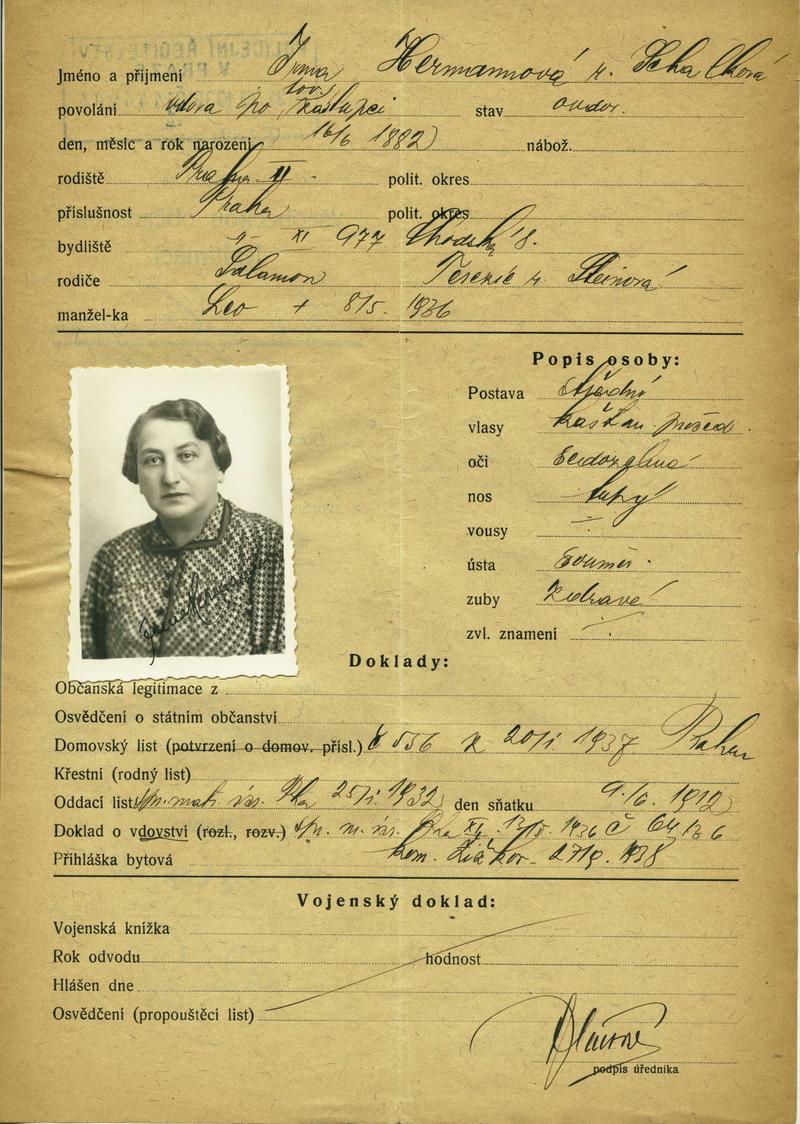 Jméno a příjmení Irma Hermannová r.
povolání vdova po tov. zástupci stav ovdov.
den, měsíc a rok narození 16/6 1882 nábož.
rodiště Praha II. polit. okres
příslušnost Praha polit. okres
bydliště " XI 977 Chodská 8.
rodiče Salamon Terezie r. Steinová
manžel-ka Leo + 8/5. 1936
Popis osoby:
Postava střední
vlasy kaštan. prošed.
oči šedozelené
nos tupý
vousy —
ústa souměr.
zuby zdravé
zvl. znamení —
Doklady:
Občanská legitimace z
Osvědčení o státním občanství
Domovský list (potvrzení o domov. přísl.) č 1937 Praha
Křestní (rodný list)
Oddací list 1932 den sňatku 9./6. 1912
Doklad o vdovství (rozl., rozv.) XII. 1936 č
Přihláška bytová kom. 1938
Vojenský doklad:
Vojenská knížka
Rok odvodu hodnost
Hlášen dne
Osvědčení (propouštěcí list)
podpis úředníka